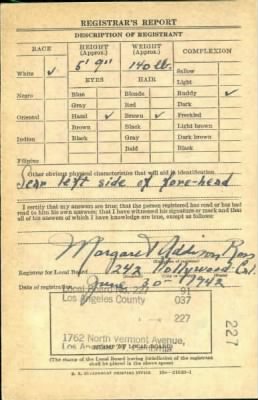 REGISTRAR'S REPORT
DESCRIPTION OF REGISTRANT
RACE HEIGHT (Approx.) WEIGHT (Approx.) COMPLEXION
5' 9" 140 lb. Sallow
White ✓ EYES HAIR Light
Negro Blue Blonde Ruddy ✓
Gray Red Dark
Oriental Hazel ✓ Brown ✓ Freckled
Brown Black Light brown
Indian Black Gray Dark brown
Bald Black
Filipino
Other obvious physical characteristics that will aid in identification
Scar left side of fore-head
I certify that my answers are true; that the person registered has read or has had
read to him his own answers; that I have witnessed his signature or mark and that
all of his answers of which I have knowledge are true, except as follows:
Margaret Addison Ross
Registrar for Local Board 242 Hollywood Cal.
Date of registration June 30 - 1942
Local Board No. 227 91
Los Angeles County 037
227
1762 North Vermont Avenue,
Los Angeles
227
(STAMP OF LOCAL BOARD)
(The stamp of the Local Board having jurisdiction of the registrant
shall be placed in the above space.)
U. S. GOVERNMENT PRINTING OFFICE